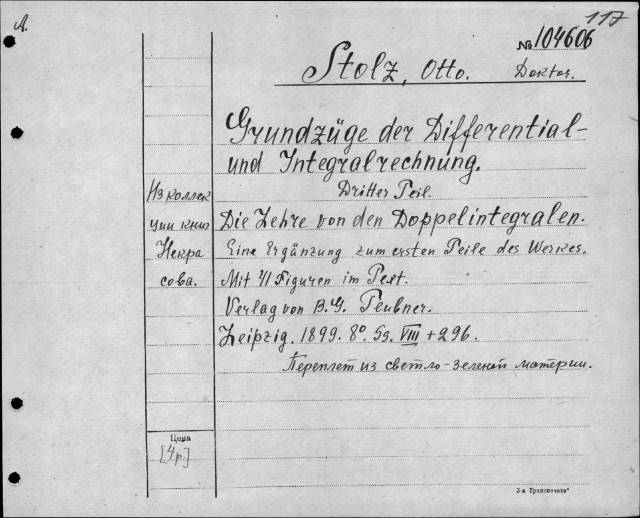 A.
117
№ 104606
Stolz, Otto. Doktor.
Grundzüge der Differential-
und Integralrechnung.
Dritter Teil.
Из коллек
ции книг
Некра
сова.
Die Lehre von den Doppelintegralen.
Eine Ergänzung zum ersten Teile des Werkes.
Mit 41 Figuren im Text.
Verlag von B. G. Teubner.
Leipzig. 1899. 8° Ss. VIII + 296.
Переплет из светло-зеленой материи.
Цена
[4р.]
3-я Транспечати"